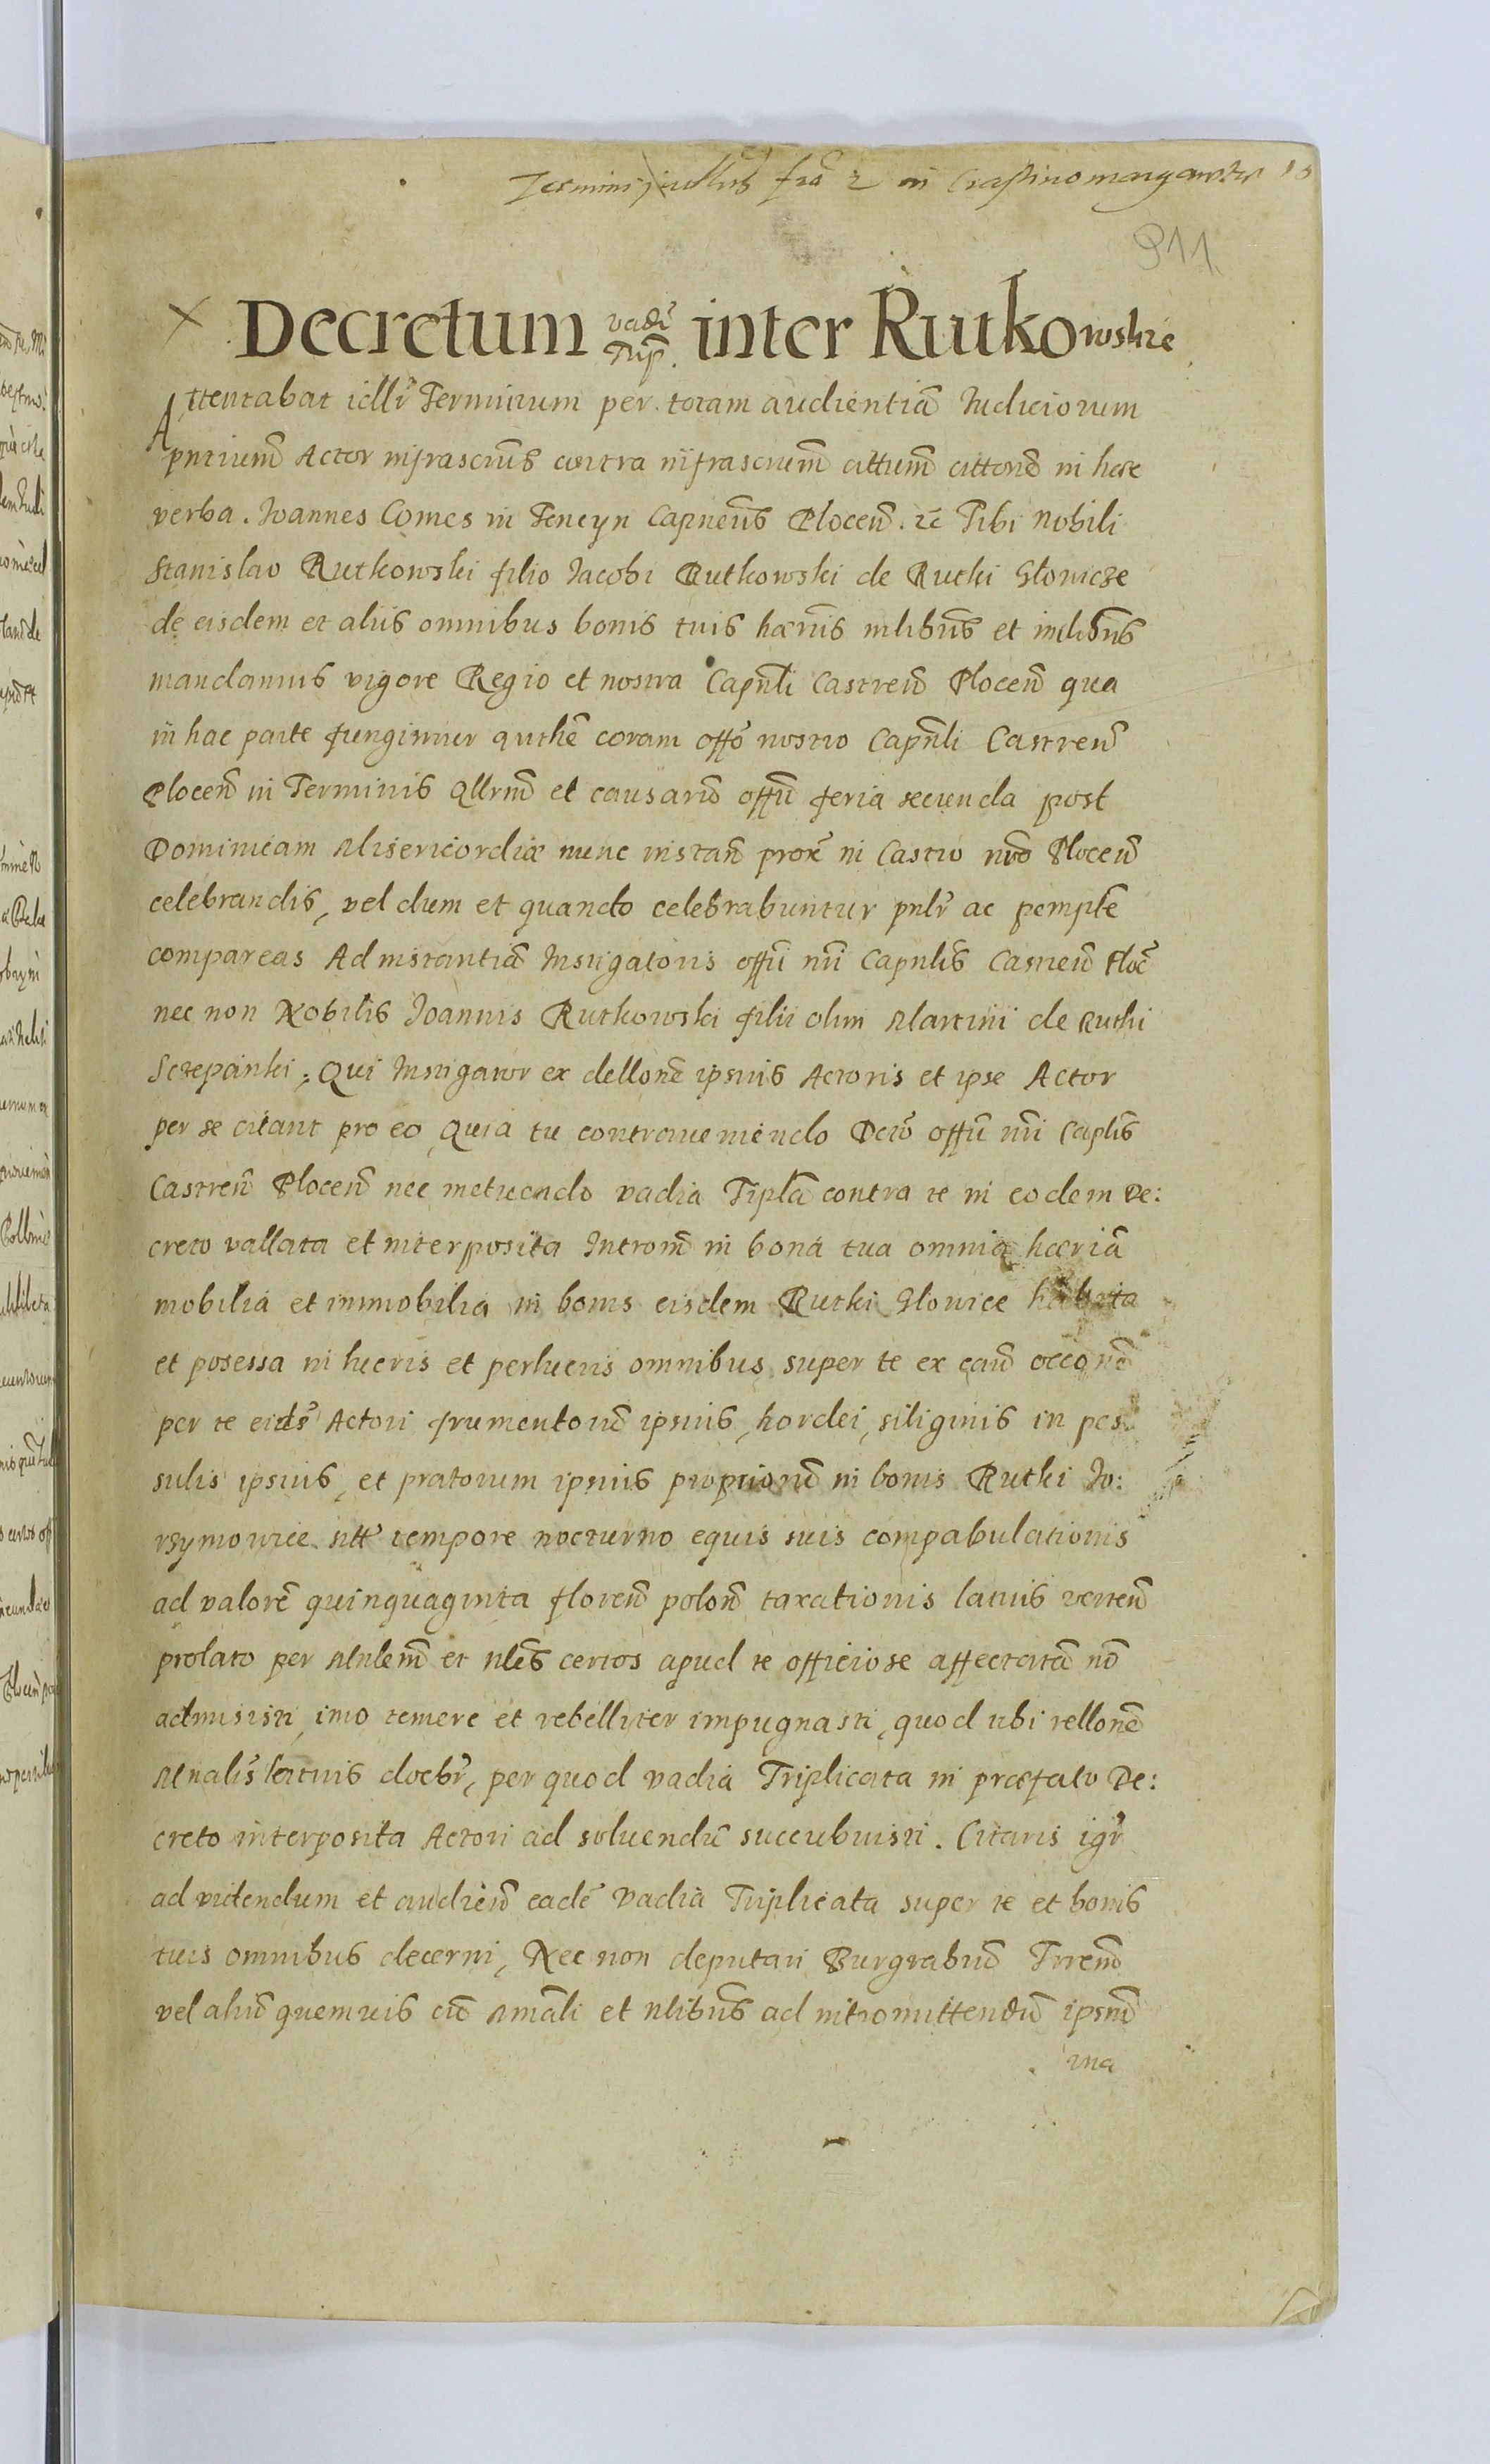 Termini judlus fra 2 in Crastino margarethe
911
× Decretum vadi Trip. inter Rutkowskie
Attentabat idllr Terminum per totam audientiã Iudiciorum
pntiũm Actor infrascrius contra infrascrum cittum cittone in haec
verba. Ioannes Comes in Tencyn Capneus Plocen. rc Tibi Nobili
Stanislao Rutkowski filio Iacobi Rutkowski de Rutki Głowicze
de eisdem et aliis omnibus bonis tuis haeriis mlibus et imlibus
mandamus vigore Regio et nostra Capnli Castren Plocen qua
in hac parte fungimur authe coram offo nostro Capnli Castren
Plocen in Terminis qllrm et causaru offii feria secunda post
Dominicam Misericordiae nunc instan prox in Castro nro Plocen
celebrandis, vel dum et quando celebrabuntur pnlr ac pempte
compareas Ad instantiã Instigatoris offii nri Capnlis Castren Ploc
nec non Nobilis Ioannis Rutkowski filii olim Martini de Rutki
Sczepanki, Qui Instigator ex dellone ipsius Actoris et ipse Actor
per se citant pro eo, Quia tu contraveniendo Dcro offii nri Caplis
Castren Plocen nec metuendo vadia Tiplã contra te in eodem De:
creto vallata et interposita Introm in bona tua omnia haeriã
mobilia et immobilia in bonis eisdem Rutki Głowice habita
et posessa in lucris et perlucris omnibus super te ex cau occone
per te eids Actori frumentorũ ipsius, hordei, siliginis in pes
sulis ipsius, et pratorum ipsius propriorũ in bonis Rutki Io:
rsymowice sitt tempore nocturno equis suis compabulationis
ad valorẽ quinquaginta floren polon taxationis latius verten
prolato per Mnlem et nles certos apud te officiose affectatã nõ
admisisti, imo temere et rebelliter impugnasti, quod ubi rellonẽ
Mnalis latius docbr, per quod vadia Triplicata in praefato De:
creto interposita Actori ad solvendũ succubuisti. Citaris igr
ad videndum et audien eadẽ vadia Triplicata super te et bonis
tuis omnibus decerni, Nec non deputari Burgrabiũ Trrem
vel aliũ quemvis cũ Mnali et nlibus ad intromittendũ ipsum
ma